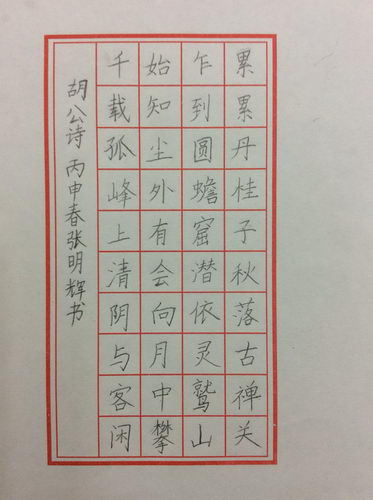 累累丹桂子秋落古禅关
乍到圆蟾窟潜依灵鹫山
始知尘外有会向月中攀
千载孤峰上清阴与客闲
胡公诗丙申春张明辉书